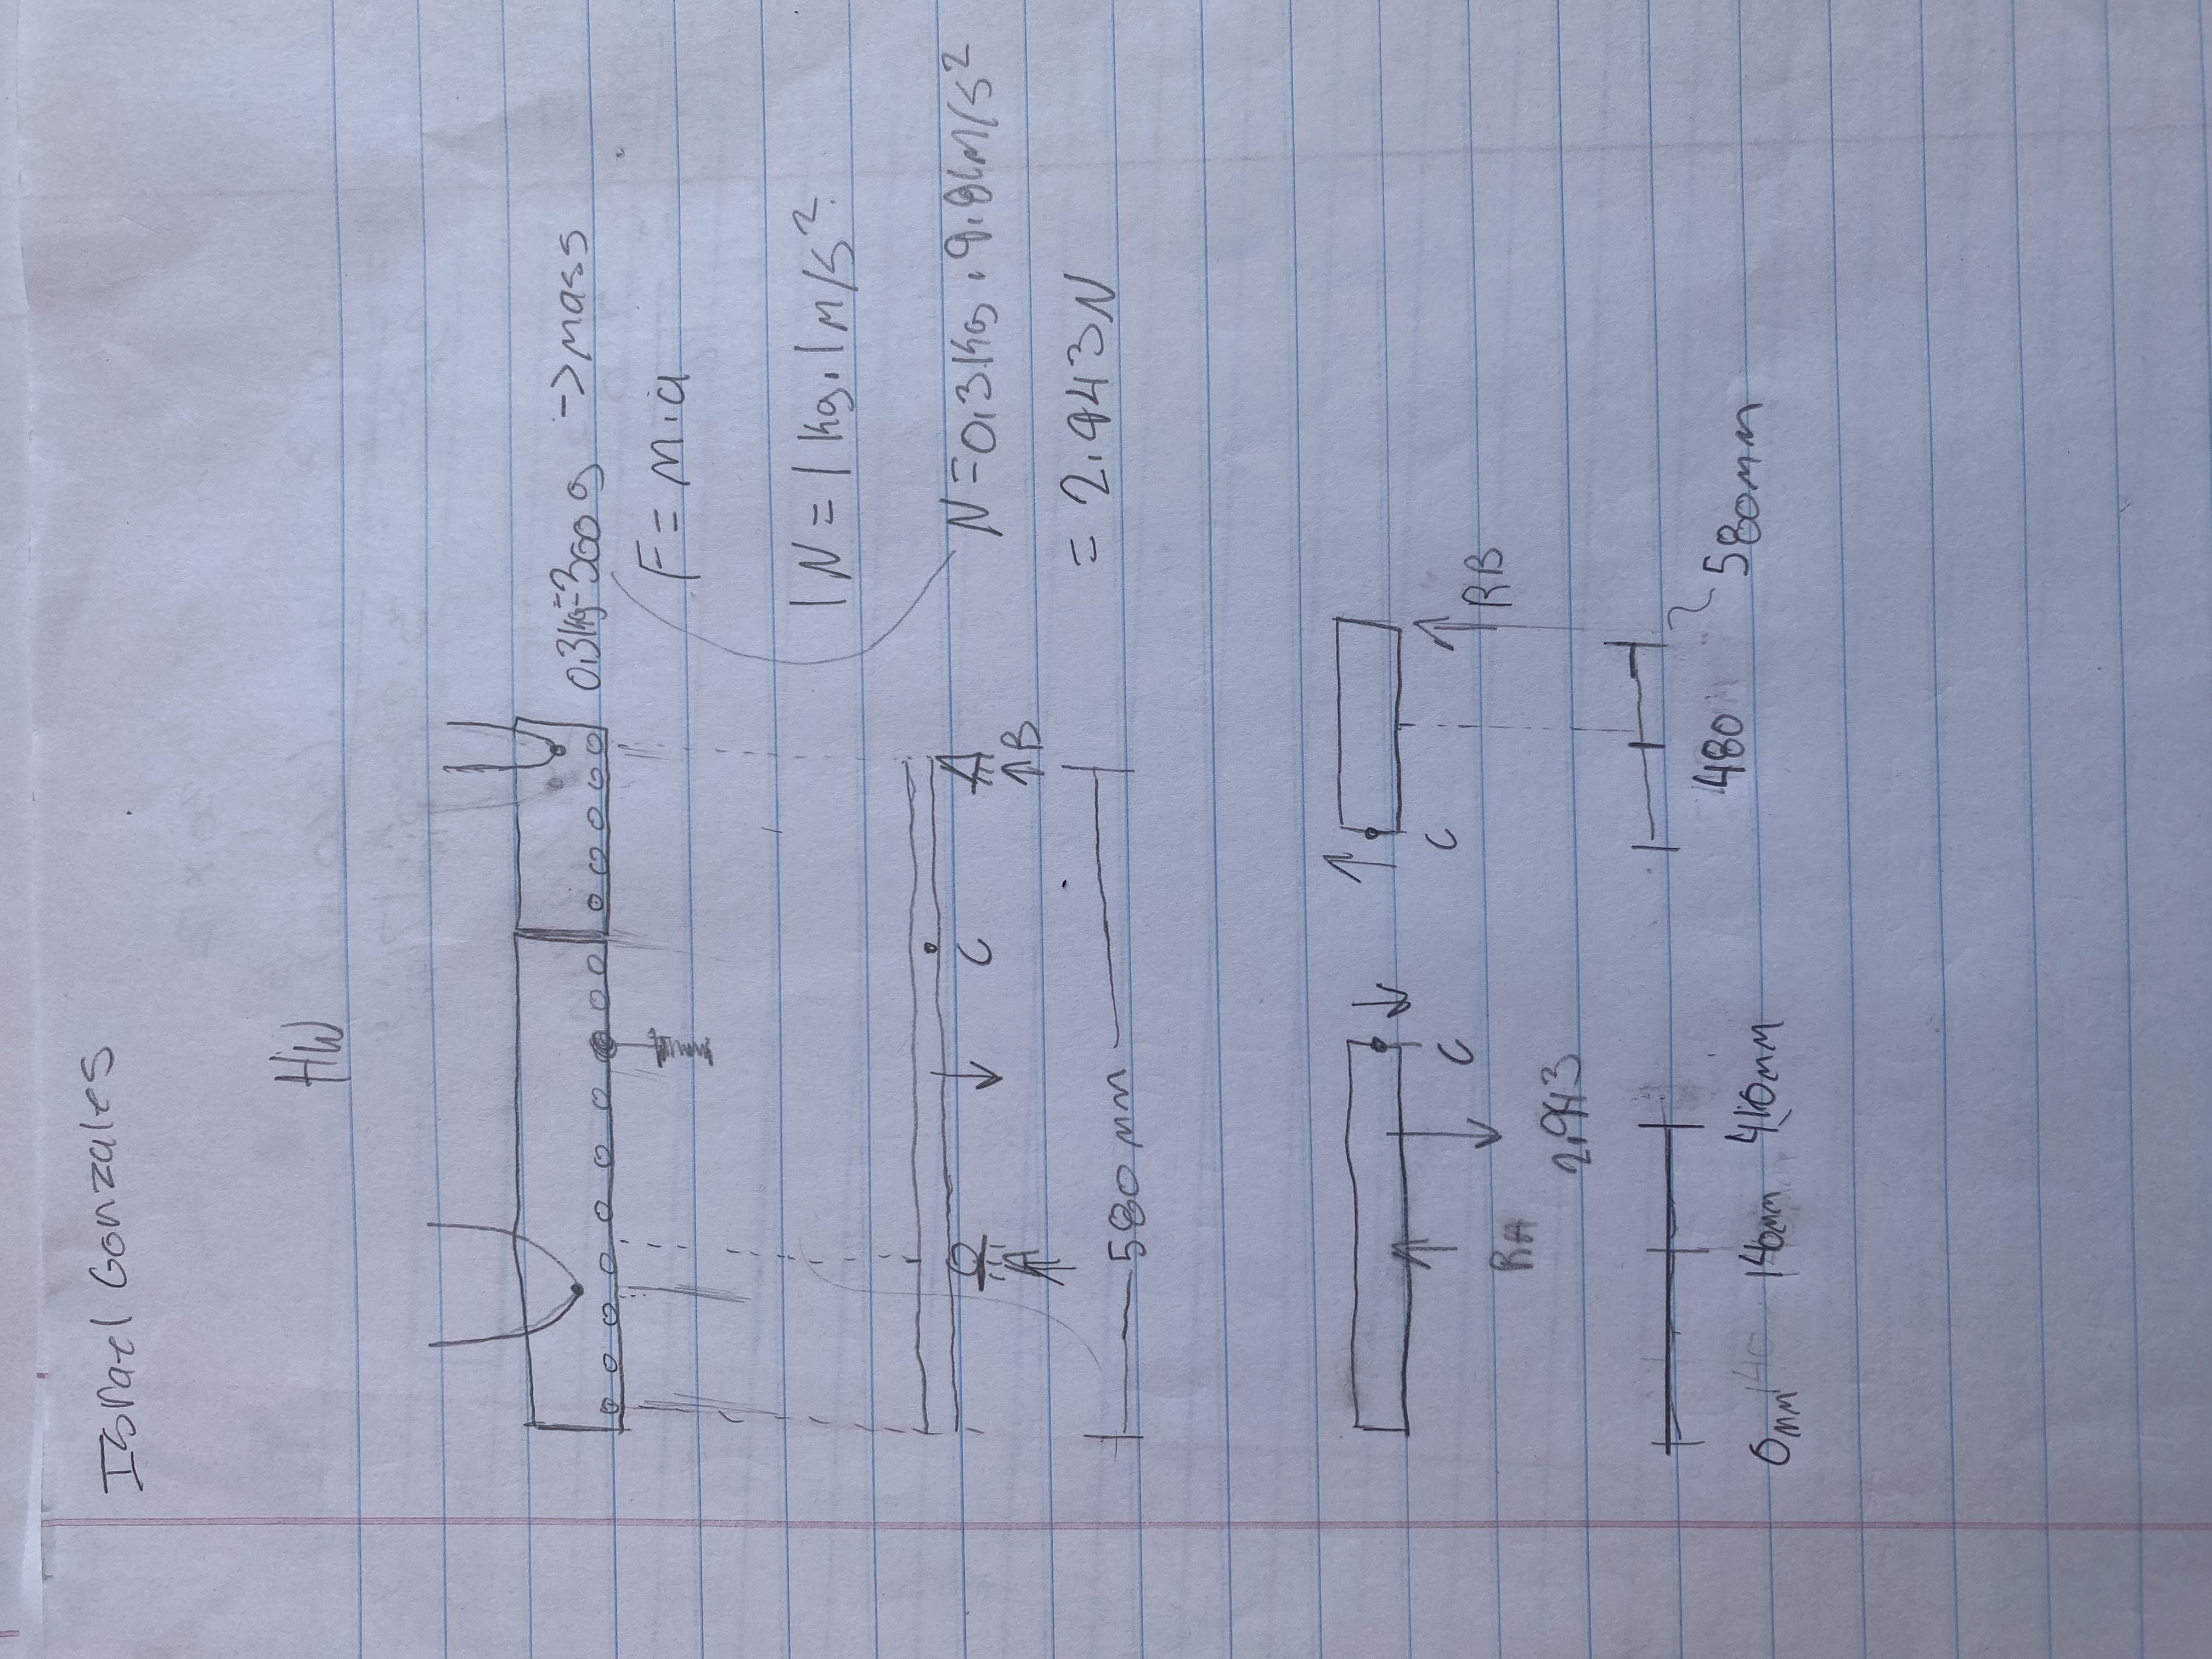 Israel Gonzales
HW
0.3kg=300g -> mass
F=m.a
1N=1kg.1m/s²
N=0.3kg.9.81m/s²
=2.943N
C
B
580mm
C
C
RB
RA
2.943
480
580mm
0mm 140mm 410mm